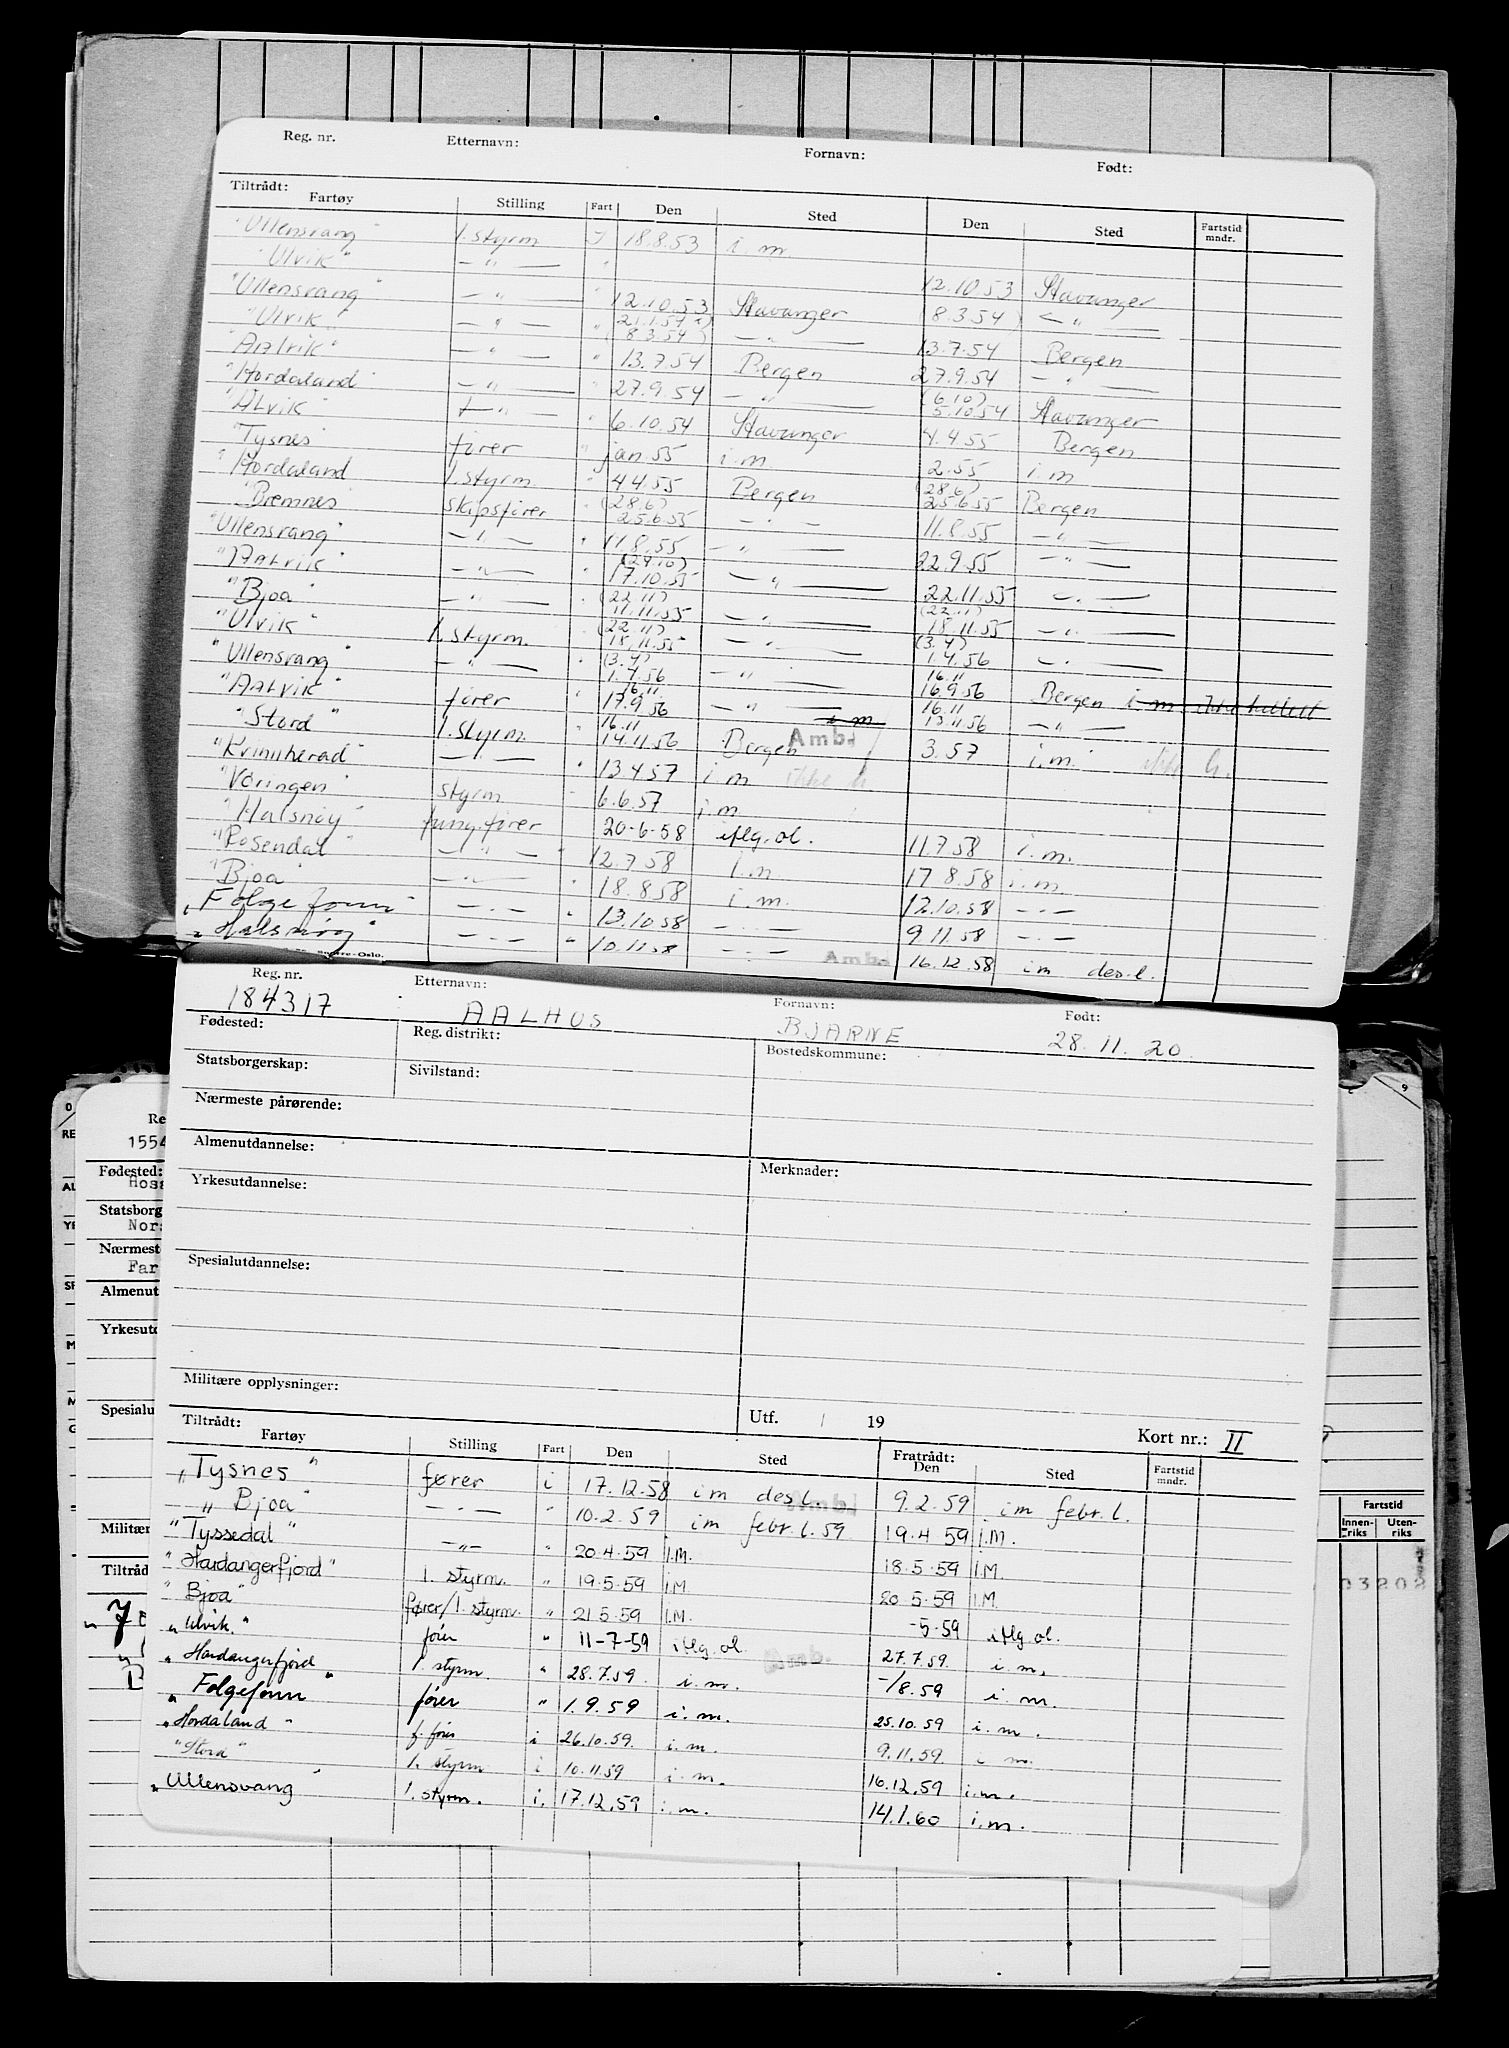 Reg. nr. Etternavn: Fornavn: Født:
Tiltrådt:
Fartøy Stilling Fart Den Sted Den Sted Fartstid mndr.
"Ullensvang" 1. styrm J 18.8.53 i m.
"Ulvik" — " — " 12.10.53 Stavanger
"Ullensvang" — " — " 12.10.53 Stavanger 8.3.54 — " —
"Ulvik" — " — " 8.3.54 — " — 13.7.54 Bergen
"Aalvik" — " — " 13.7.54 Bergen 27.9.54 — " —
"Hordaland" — " — " 27.9.54 — " — (6.10) 5.10.54 Stavanger
"Alvik" — " — " 6.10.54 Stavanger 4.4.55 Bergen
"Tysnes" fører " jan. 55 i.m 2.55 i.m
"Hordaland 1. styrm. " 4.4.55 Bergen (28.6) 25.6.55 Bergen
"Bremnes" skipsfører " (28.6) 25.6.55 — " — 11.8.55 — " —
"Ullensvang" — " — " 11.8.55 — " — 22.9.55 — " —
"Aalvik" — " — " 17.10.55 — " — 22.11.55 — " —
"Bjoa" — " — " (22.11) 11.11.55 — " — (22.11) 18.11.55 — " —
"Ulvik" 1. styrm. " (22.11) 18.11.55 — " — (3.4) 1.4.56 — " —
"Ullensvang" — " — " (3.4) 1.4.56 — " — 16.11 16.9.56 Bergen i m ikke
"Aalvik" fører " 16.11 17.9.56 — " — i m 16.11 13.11.56 — " —
"Stord" 1. styrm. " 16.11 14.11.56 Bergen Amb. 3.57 i.m. ikke h.
"Kvinnherad" — " — " 13.4.57 i m ikke h
"Vøringen" styrm " 6.6.57 i m
"Halsnøy" fung. fører 20-6-58 iflg. ol. 11.7.58 i.m.
"Rosendal" — " — " 12.7.58 i.m 17.8.58 i.m.
"Bjoa" — " — " 18.8.58 i.m. 12.10.58 — " —
"Folgefonn" — " — " 13.10.58 — " — 9.11.58 — " —
"Halsnøy" — " — " 10.11.58 — " — Amb. 16.12.58 im des. l.
Oslo.
Reg. nr. Etternavn: Fornavn: Født:
184317 AALHUS BJARNE 28.11.20.
Fødested: Reg. distrikt: Bostedskommune:
Statsborgerskap: Sivilstand:
Nærmeste pårørende:
Almenutdannelse: Merknader:
Yrkesutdannelse:
Spesialutdannelse:
Militære opplysninger:
Utf. / 19 Kort nr.: II
Tiltrådt: Fratrådt:
Fartøy Stilling Fart Den Sted Den Sted Fartstid mndr.
"Tysnes" fører i 17.12.58 im des. l. 9.2.59 im febr. l.
"Bjoa" — " — " 10.2.59 im febr. l. 59 Amb. 19.4.59 I.M.
"Tyssedal" — " — " 20.4.59 I.M. 18.5.59 I.M.
"Hardangerfjord" 1. styrm. " 19.5.59 I.M 20.5.59 I.M.
"Bjoa" fører/1. styrm. " 21.5.59 I.M. -5-59 iflg ol.
"Ulvik." fører " 11-7-59 iflg. ol. Amb. 27.7.59. i. m.
"Hardangerfjord 1. styrm. " 28.7.59. i. m. -/8.59 i. m.
"Folgefonn" fører " 1.9.59 i. m. 25.10.59 i. m.
"Hordaland" f. fører i 26.10.59. i. m. 9.11.59. i m.
"Stord" 1. styrm i 10.11.59 i. m. 16.12.59 i.m.
"Ullensvang" 1. styrm. i. 17.12.59 i. m. 14.1.60 i. m.
1554
Fødested:
Hoss
Statsborg
Nors
Nærmeste
Far
Almenut
Yrkesutd
Spesialu
Militær
Tiltråd
Fartstid
Innenriks Utenriks
03202